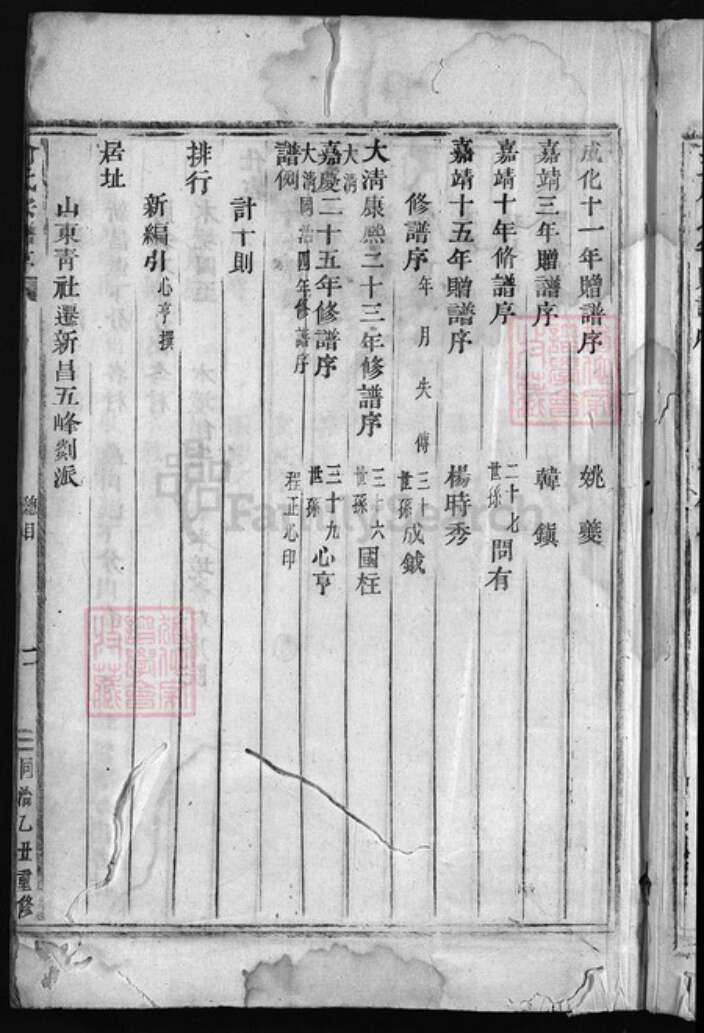 成化十一年贈譜序 姚夔
嘉靖三年贈譜序 韓鎮
嘉靖十年脩譜序 二十七世孫問有
嘉靖十五年贈譜序 楊時秀
修譜序 年月失傳 三十世孫成鉞
大清康熙二十三年修譜序 三十六世孫國柱
大清嘉慶二十五年修譜序 三十九世孫心亨
大清同治四年修譜序 程正心印
譜例
計十則
排行
新編引 心亨撰
居址
山東青社遷新昌五峰劉派
總目
同治乙丑重修
FamilySearch